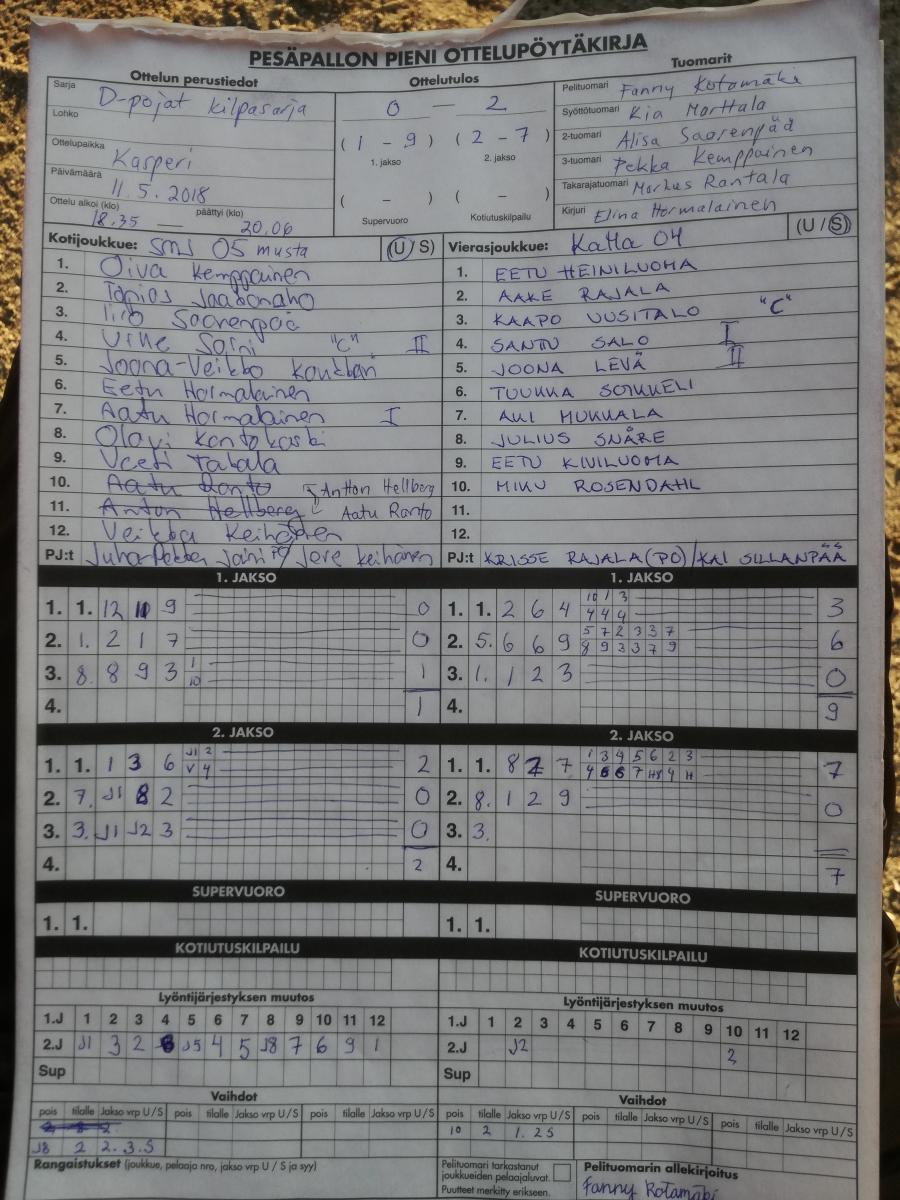 PESÄPALLON PIENI OTTELUPÖYTÄKIRJA
Ottelun perustiedot
Sarja D-pojat kilpasarja
Lohko
Ottelupaikka Kasperi
Päivämäärä 11.5.2018
Ottelu alkoi (klo) päättyi (klo)
18.35 — 20.06
Ottelutulos
0 — 2
(1 - 9) (2 - 7)
1. jakso 2. jakso
( - ) ( - )
Supervuoro Kotiutuskilpailu
Tuomarit
Pelituomari Fanny Kotamäki
Syöttötuomari Kia Marttala
2-tuomari Alisa Saarenpää
3-tuomari Pekka Kemppainen
Takarajatuomari Markus Rantala
Kirjuri Elina Harmalainen
Kotijoukkue: SMJ 05 musta (U/S)
1. Oiva Kemppainen
2.
3. Iiro Saarenpää
4. Saini "C" II
5. Joona-Veikko
6. Eetu Harmalainen
7. Aatu Harmalainen I
8. Olavi Kantokoski
9. Veeti
10. Aatu Ranto Antton Hellberg
11. Anton Hellberg Aatu Ranto
12. Keihänen
PJ:t Juha-Pekka Saini PO/ Jere Keihänen
Vierasjoukkue: KaMa 04 (U/S)
1. EETU HEINILUOMA
2. AAKE RAJALA
3. KAAPO UUSITALO "C"
4. SANTU SALO I
5. JOONA LEVÄ II
6. TUUKKA SOIKKELI
7. AKI MUKKALA
8. JULIUS SNÅRE
9. EETU KIVILUOMA
10. MIKU ROSENDAHL
11.
12.
PJ:t KRISSE RAJALA (PO) / KAI SILLANPÄÄ
1. JAKSO
1. 1. 12 9 0
2. 1. 2 1 7 0
3. 8. 8 9 3 1 10 1
4. 1
1. JAKSO
1. 1. 2 6 4 10 1 3 3
4 4 4
2. 5. 6 6 9 5 7 2 3 3 7 6
8 9 3 3 7 9
3. 1. 1 2 3 0
4. 9
2. JAKSO
1. 1. 1 3 6 J1 2 2
V 4
2. 7. J1 8 2 0
3. 3. J1 J2 3 0
4. 2
2. JAKSO
1. 1. 8 7 1 3 4 5 6 2 3 7
4 6 6 7 4
2. 8. 1 2 9 0
3. 3.
4. 7
SUPERVUORO
1. 1.
SUPERVUORO
1. 1.
KOTIUTUSKILPAILU
KOTIUTUSKILPAILU
Lyöntijärjestyksen muutos
1.J 1 2 3 4 5 6 7 8 9 10 11 12
2.J J1 3 2 J5 4 5 J8 7 6 9 1
Sup
Lyöntijärjestyksen muutos
1.J 1 2 3 4 5 6 7 8 9 10 11 12
2.J J2 2
Sup
Vaihdot
pois tilalle Jakso vrp U/S pois tilalle Jakso vrp U/S pois tilalle Jakso vrp U/S
J8 2 2.3.S
Vaihdot
pois tilalle Jakso vrp U/S pois tilalle Jakso vrp U/S pois tilalle Jakso vrp U/S
10 2 1.2S
Rangaistukset (joukkue, pelaaja nro, jakso vrp U / S ja syy)
Pelituomari tarkastanut
joukkueiden pelaajaluvat.
Puutteet merkitty erikseen.
Pelituomarin allekirjoitus
Fanny Kotamäki